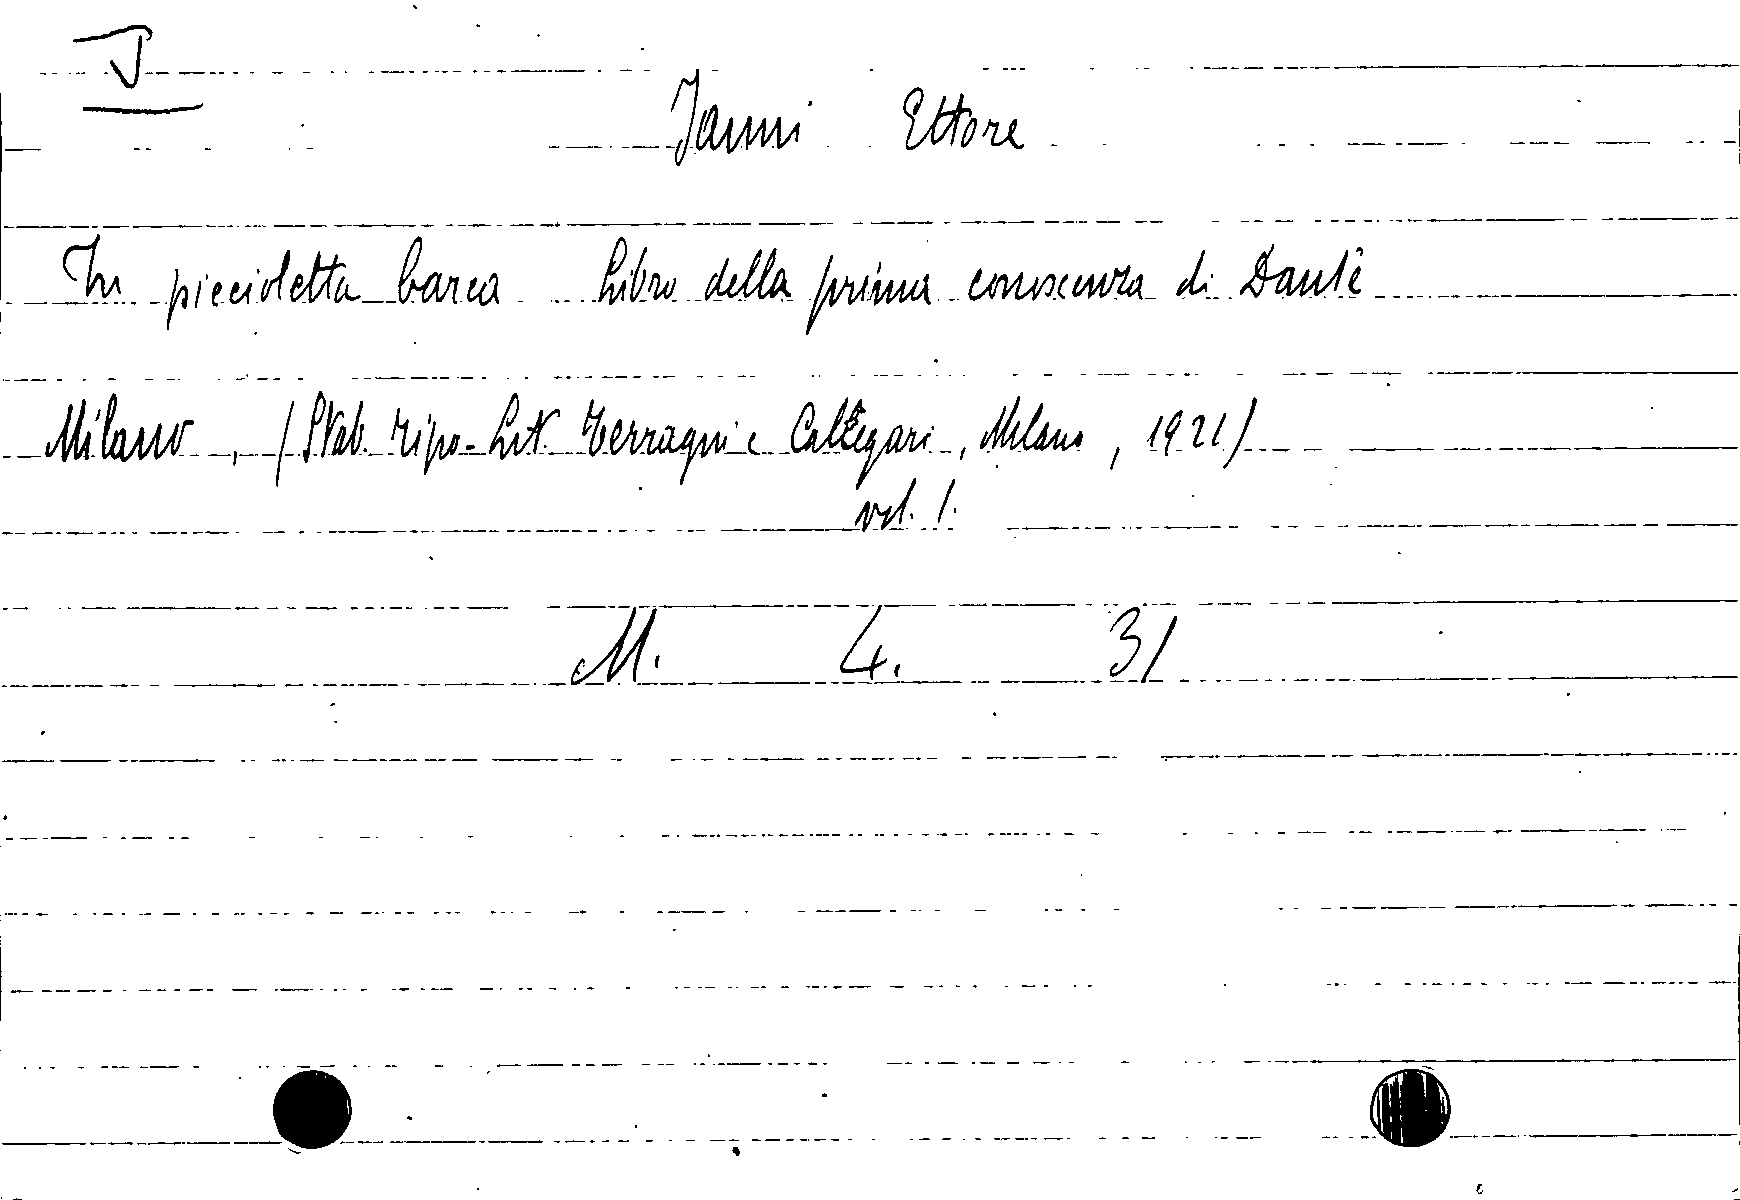 J
Janni Ettore
In piccioletta barca Libro della prima conoscenza di Dante
Milano, (Stab. Tipo-Lit. Terragni e Callegari, Milano, 1921)
vol. 1.
M. 4. 31